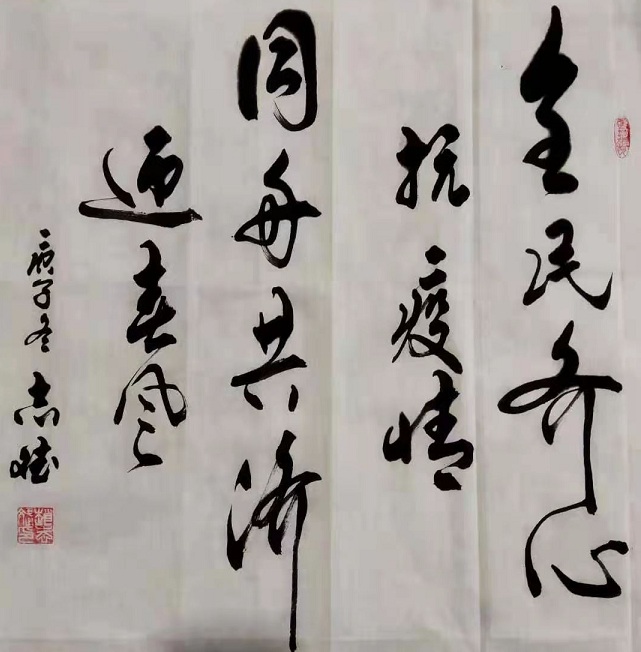 全民齐心
抗疫情
同舟共济
迎春风
庚子冬
志斌